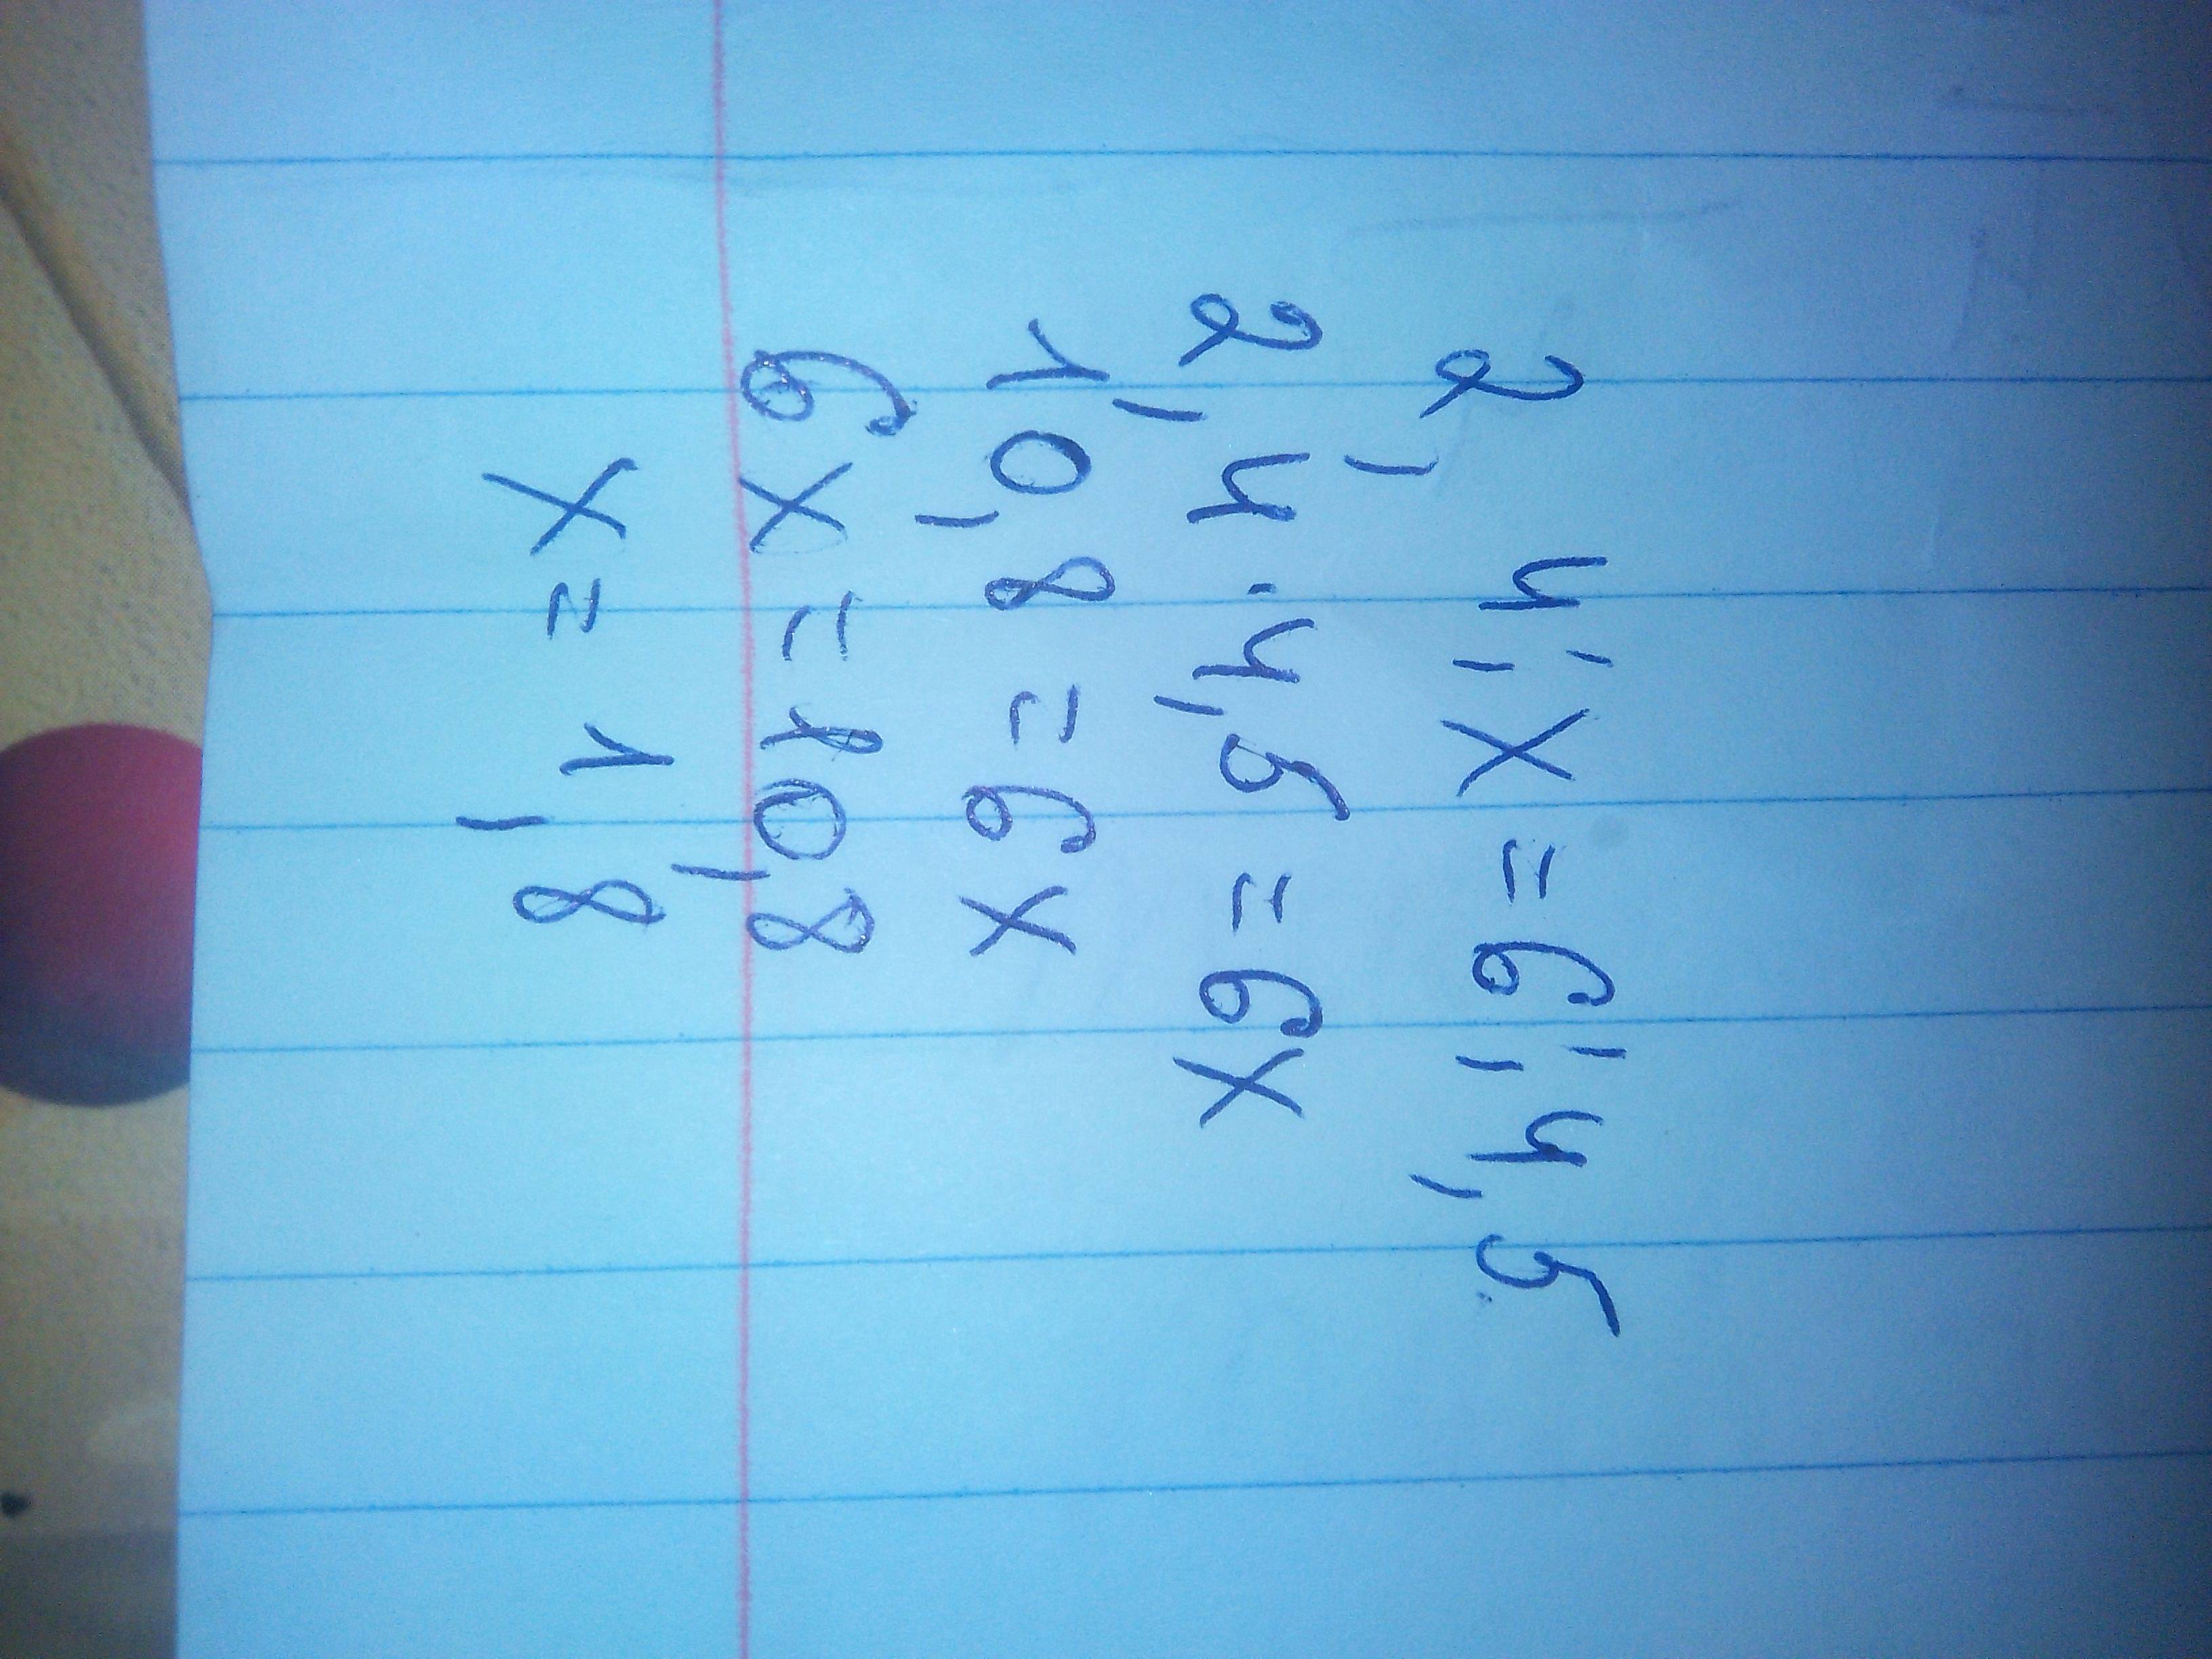 2,4:x=6:4,5
2,4·4,5=6x
10,8=6x
6x=10,8
x=1,8